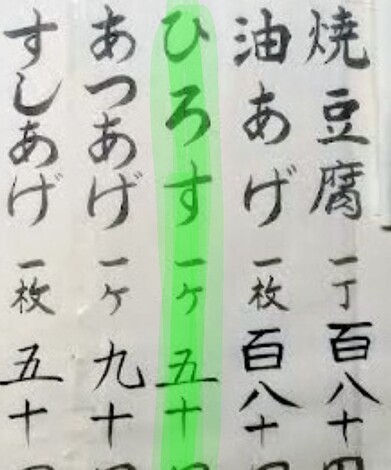 焼豆腐 一丁 百八十
油あげ 一枚 百八十
ひろす 一ヶ 五十
あつあげ 一ヶ 九十
すしあげ 一枚 五十